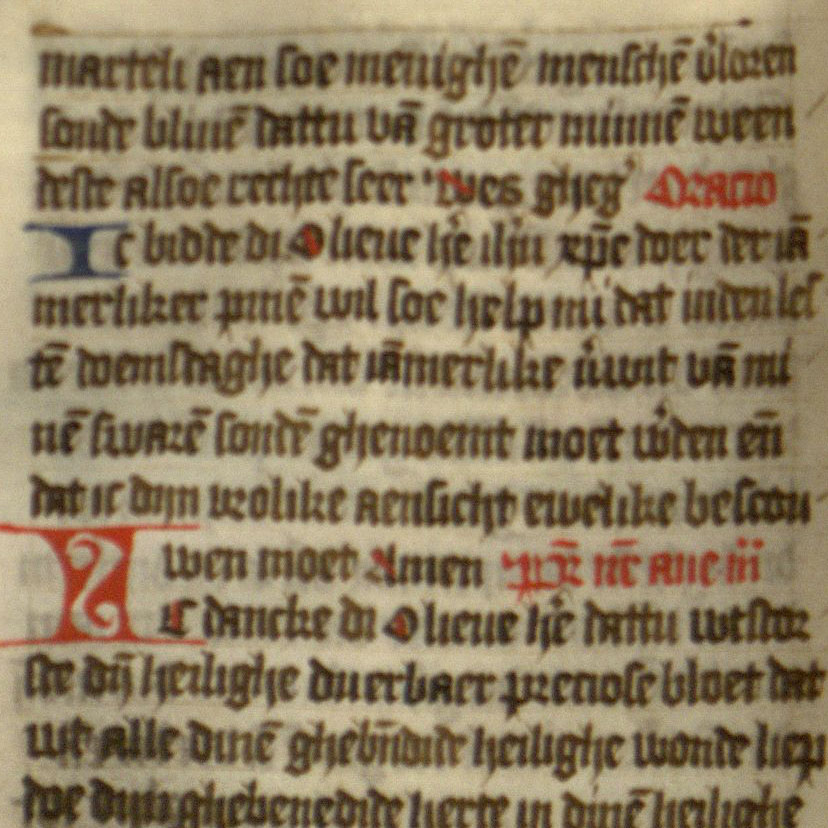 martelt aen soe menighē menschē v̾loren
sonde bliuē dattu vā groter minnē ween
deste alsoe rechte seer wes ghey Oracio
Ic bidde di O lieue hē ihū xp̄e doer der iā
merliker pinē wil soe help mi dat inden les
tē doemsdaghe dat iāmerlike v̾wit vā mi
nē swarē sondē ghenoemt moet w̾den eñ
dat ic dijn vrolike aensicht ewelike bescou
wen moet Amen pr̄ nr̄ aue iii
Ic dancke di O lieue hē dattu wtstor
ste dij̄ heilighe duerbaer preciose bloet dat
wt alle dinē ghebn̄dide heilighe wonde liep
doe dijn ghebenedide herte in dinē heilighe